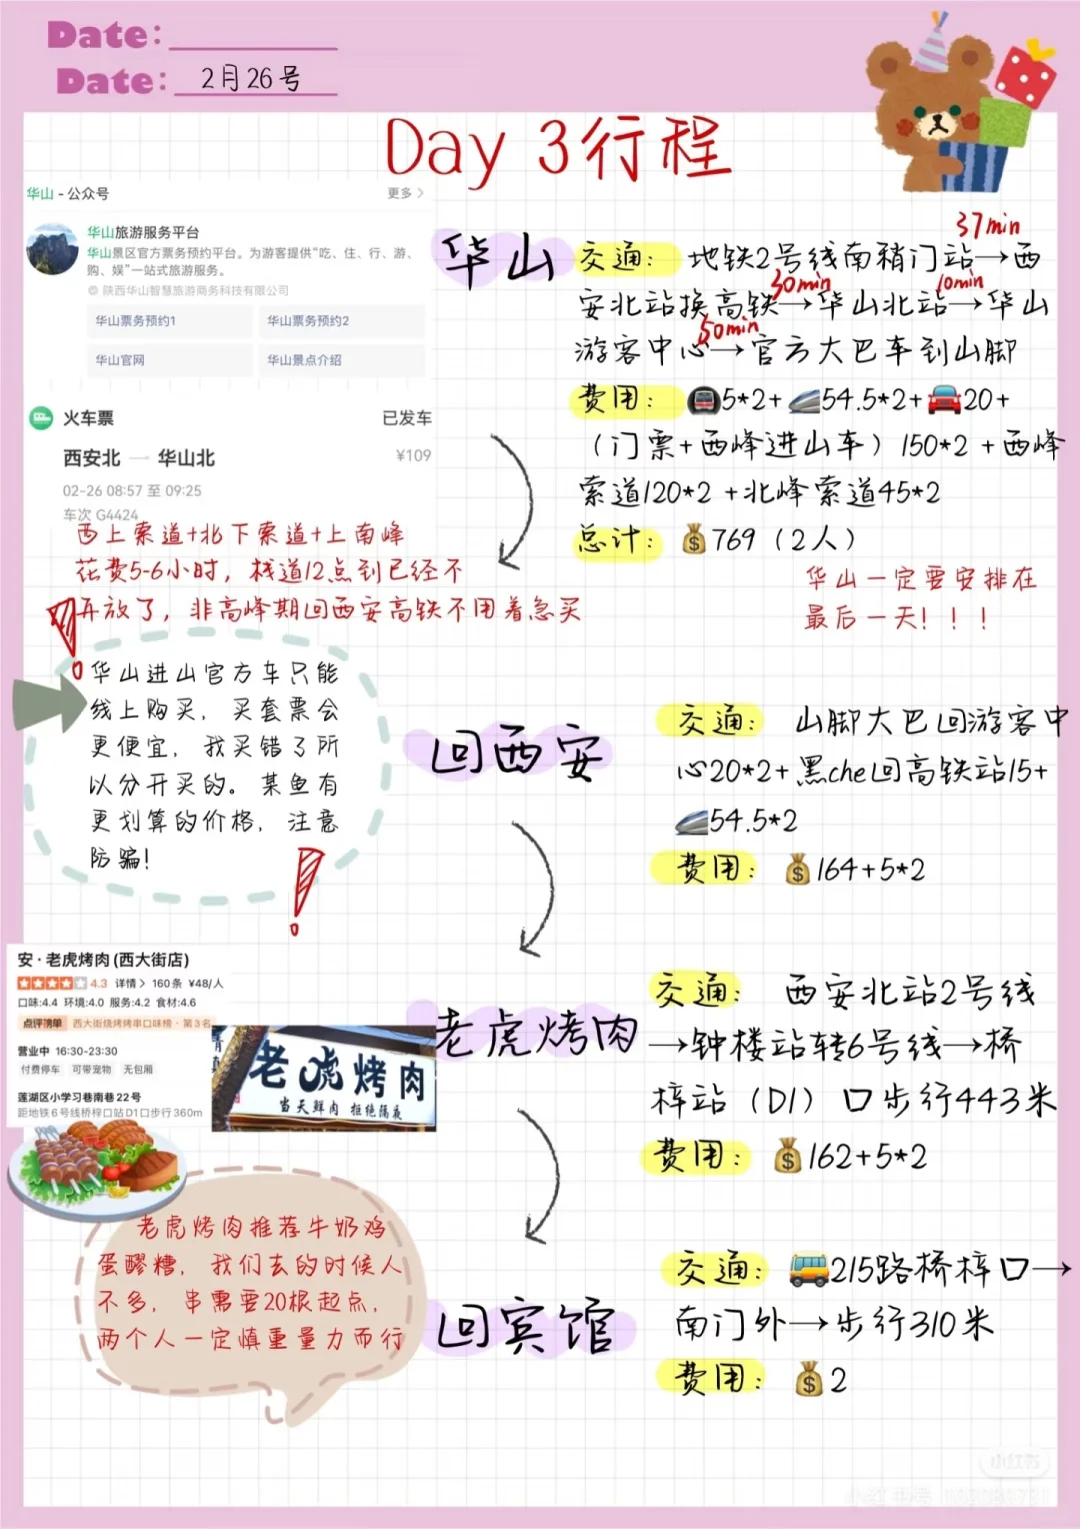 Date:
Date: 2月26号
Day 3行程
华山 - 公众号
更多 >
华山旅游服务平台
华山景区官方票务预约平台。为游客提供“吃、住、行、游、
购、娱”一站式旅游服务。
陕西华山智慧旅游商务科技有限公司
华山票务预约1
华山票务预约2
华山官网
华山景点介绍
火车票
已发车
西安北 — 华山北
¥109
02-26 08:57 至 09:25
车次 G4424
华山
37min
交通: 地铁2号线南稍门站→西
30min 10min
安北站换高铁→华山北站→华山
50min
游客中心→官方大巴车到山脚
费用: 🚇5*2+🚄54.5*2+🚘20+
(门票+西峰进山车)150*2 +西峰
索道120*2 +北峰索道45*2
总计: 💰769(2人)
西上索道+北下索道+上南峰
花费5-6小时,栈道12点到已经不
开放了,非高峰期回西安高铁不用着急买
华山一定要安排在
最后一天!!!
华山进山官方车只能
线上购买,买套票会
更便宜,我买错了所
以分开买的。某鱼有
更划算的价格,注意
防骗!
回西安
交通: 山脚大巴回游客中
心20*2+黑che回高铁站15+
🚄54.5*2
费用: 💰164+5*2
安·老虎烤肉(西大街店)
4.3 详情> 160条 ¥48/人
口味:4.4 环境:4.0 服务:4.2 食材:4.6
点评榜单 西大街烧烤烤串口味榜·第3名
营业中 16:30-23:30
付费停车 可带宠物 无包厢
莲湖区小学习巷南巷22号
距地铁6号线桥梓口站D1口步行360m
老虎烤肉
当天鲜肉 拒绝隔夜
老虎烤肉
交通: 西安北站2号线
→钟楼站转6号线→桥
梓站(D1)口步行443米
费用: 💰162+5*2
老虎烤肉推荐牛奶鸡
蛋醪糟,我们去的时候人
不多,串需要20根起点,
两个人一定慎重量力而行
回宾馆
交通: 🚌215路桥梓口→
南门外→步行310米
费用: 💰2
小红书